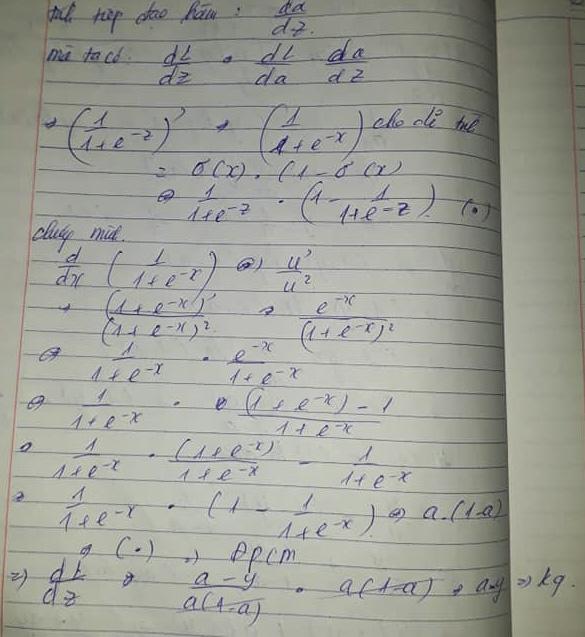 tính tiếp đạo hàm : da/dz.
mà ta có. dL/dz = dL/da . da/dz
→ (1/(1+e^-z))' → (1/(1+e^-x)) cho dễ tính
= σ(x) . (1 - σ(x)
⇔ 1/(1+e^-z) . (1 - 1/(1+e^-z)). (•)
chứng minh.
d/dx (1/(1+e^-x)) ⇔ u'/u²
→ (1+e^-x)'/(1+e^-x)² → e^-x/(1+e^-x)²
⇔ 1/(1+e^-x) . e^-x/(1+e^-x)
⇔ 1/(1+e^-x) . ((1+e^-x) - 1)/(1+e^-x)
→ 1/(1+e^-x) . (1+e^-x)/(1+e^-x) - 1/(1+e^-x)
→ 1/(1+e^-x) . (1 - 1/(1+e^-x)) ⇔ a.(1-a)
⇔ (•) → Đpcm
⇒ dL/dz ⇔ (a-y)/(a(1-a)) . a(1-a) = a-y ⇒ kq.